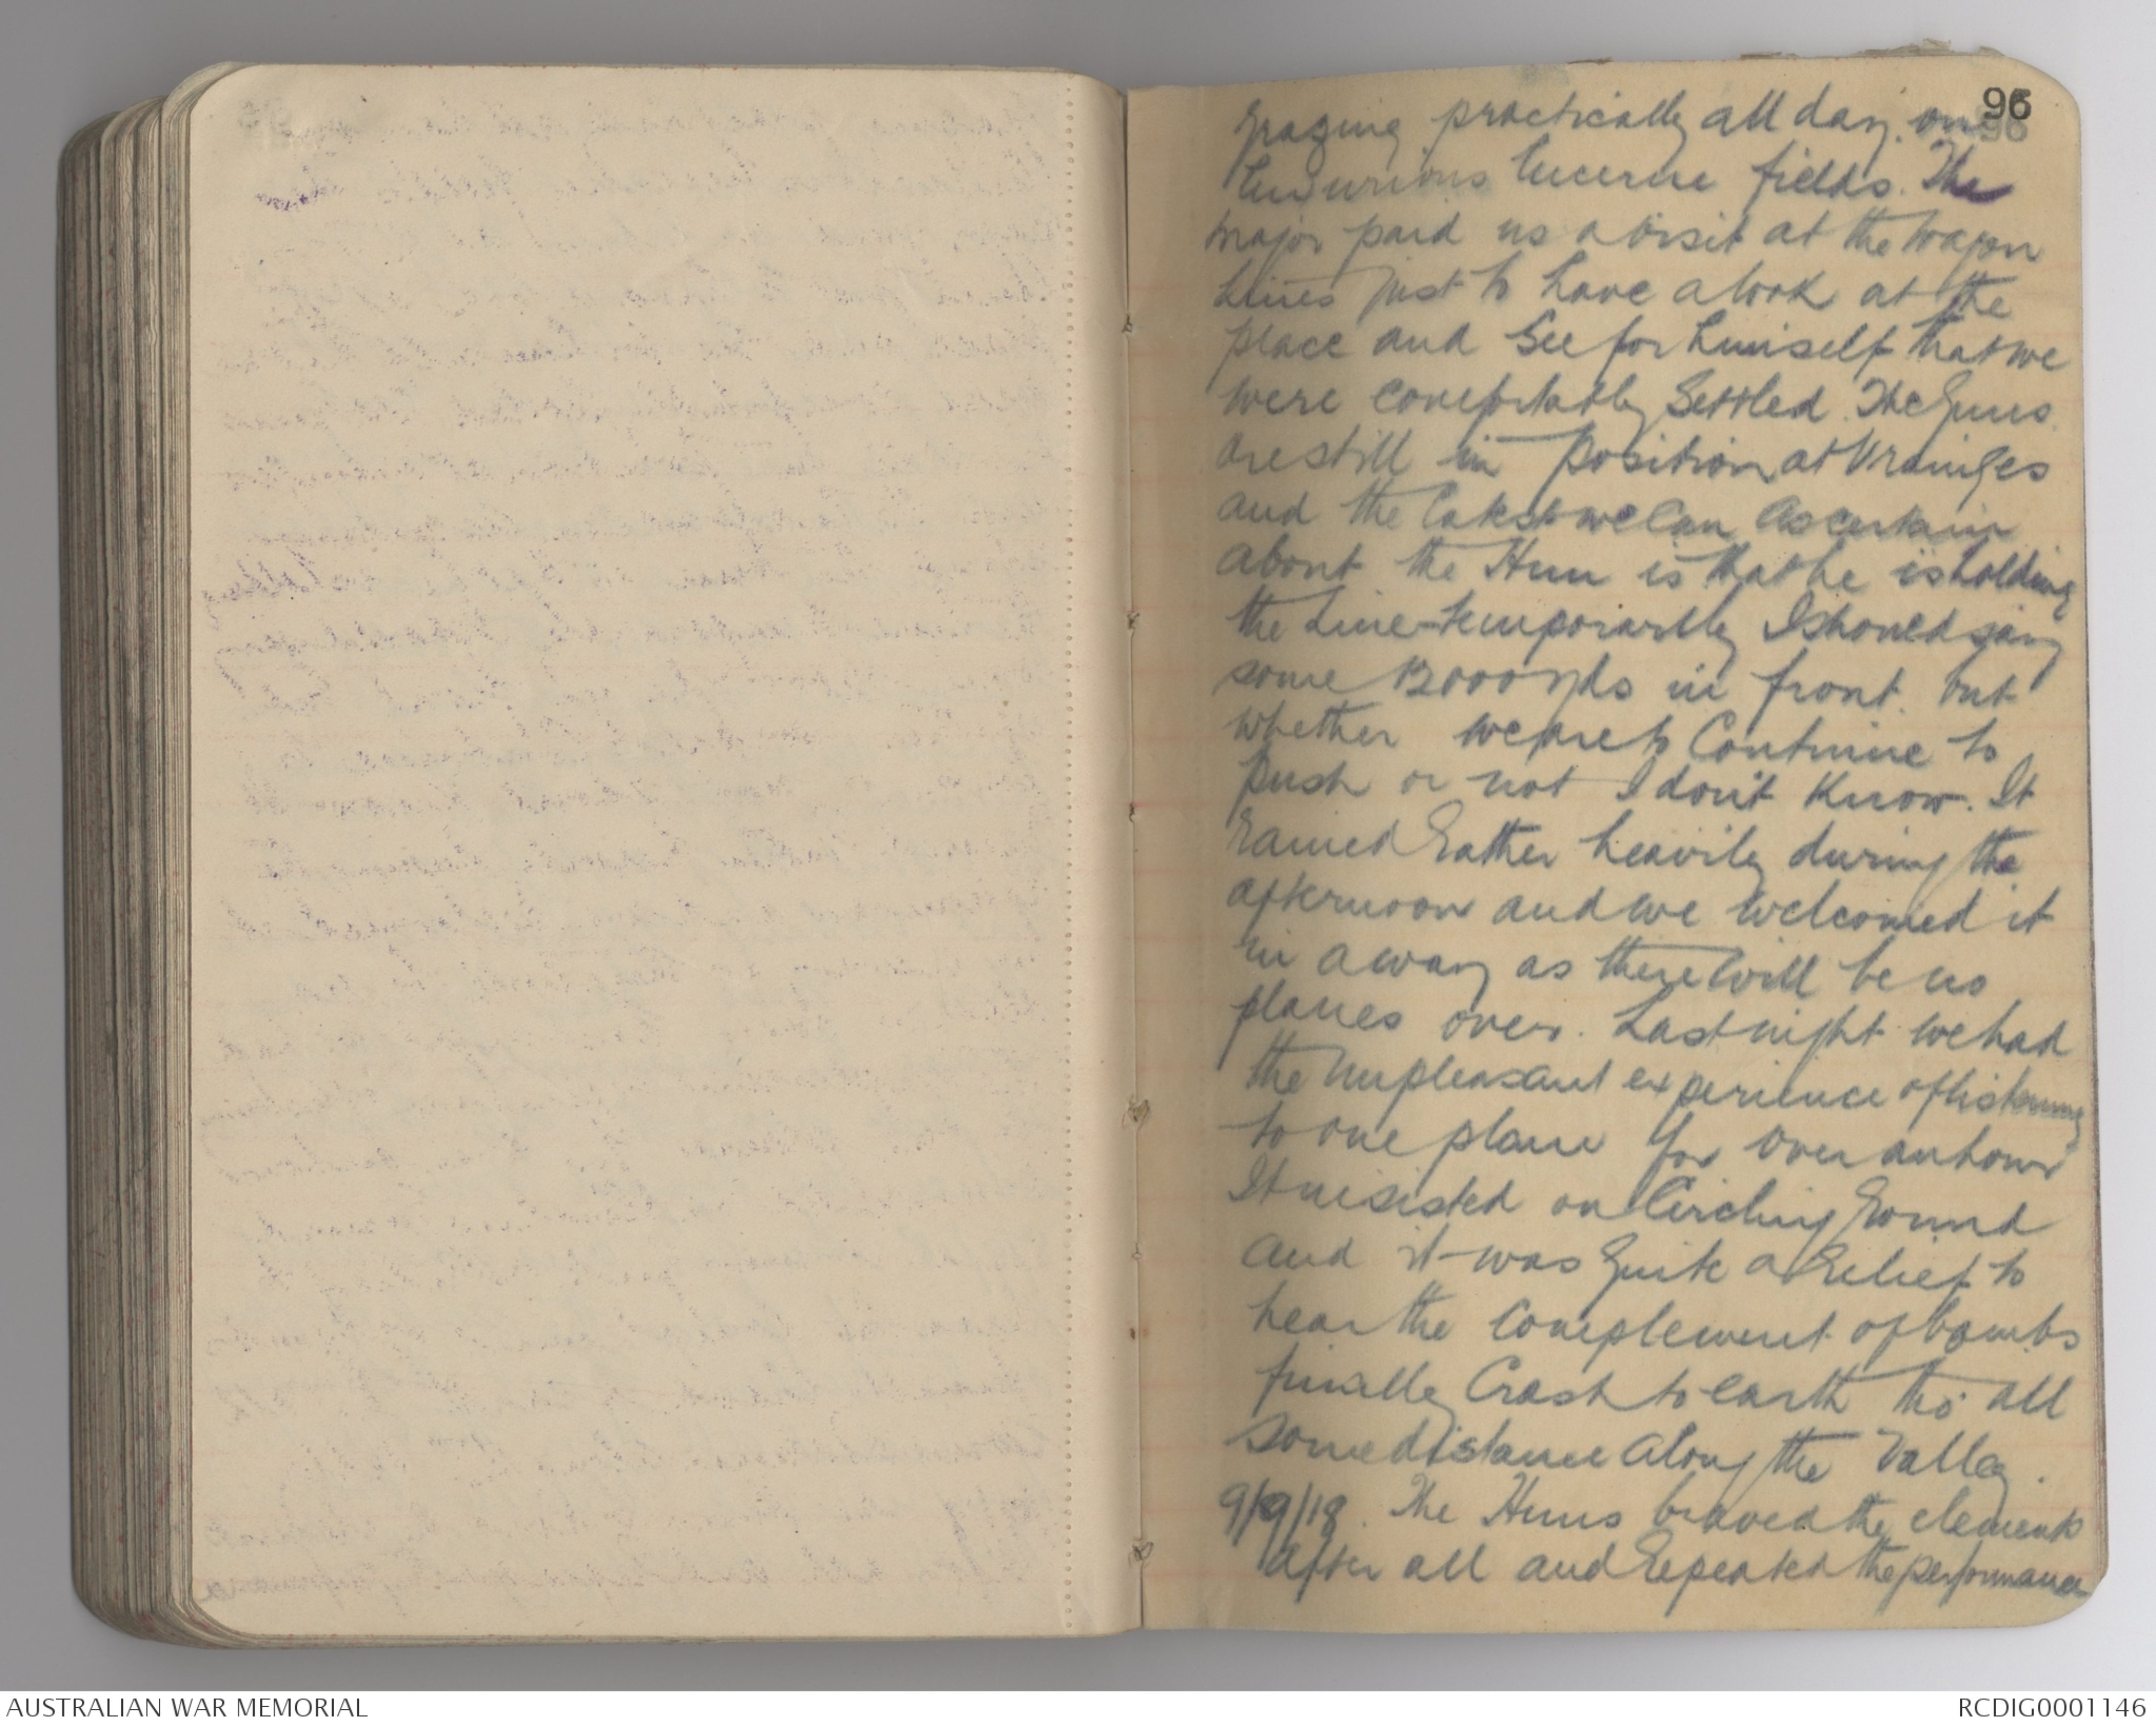 96
grazing practically all day on
luxurious lucerne fields. The
Major paid us a visit at the Wagon
Lines just to have a look at the
place and see for himself that we
were comfortably settled. The Guns
are still in position at Vraignes
and the latest we can ascertain
about the Hun is that he is holding
the line - temporarily I should say
some 12000 yds in front. but
whether we are to continue to
push or not I don't know. It
rained rather heavily during the
afternoon and we welcomed it
in a way as there will be no
planes over. Last night we had
the unpleasant experience of listening
to one plane for over an hour
It insisted on circling round
and it was quite a relief to
hear the complement of bombs
finally crash to earth tho' all
some distance along the Valley.
9/9/18. The Huns braved the elements
after all and repeated the performance
AUSTRALIAN WAR MEMORIAL
RCDIG0001146